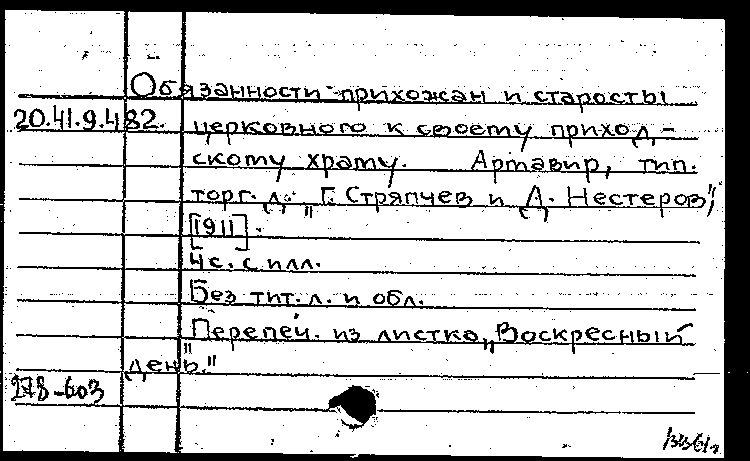 Обязанности прихожан и старосты
20.41.9.482. церковного к своему приход,-
скому храму. Армавир, тип.
торг. д. "Г. Стряпчев и Д. Нестеров",
[1911].
4 с. с илл.
Без тит. л. и обл.
Перепеч. из листка "Воскресный
день."
278-603